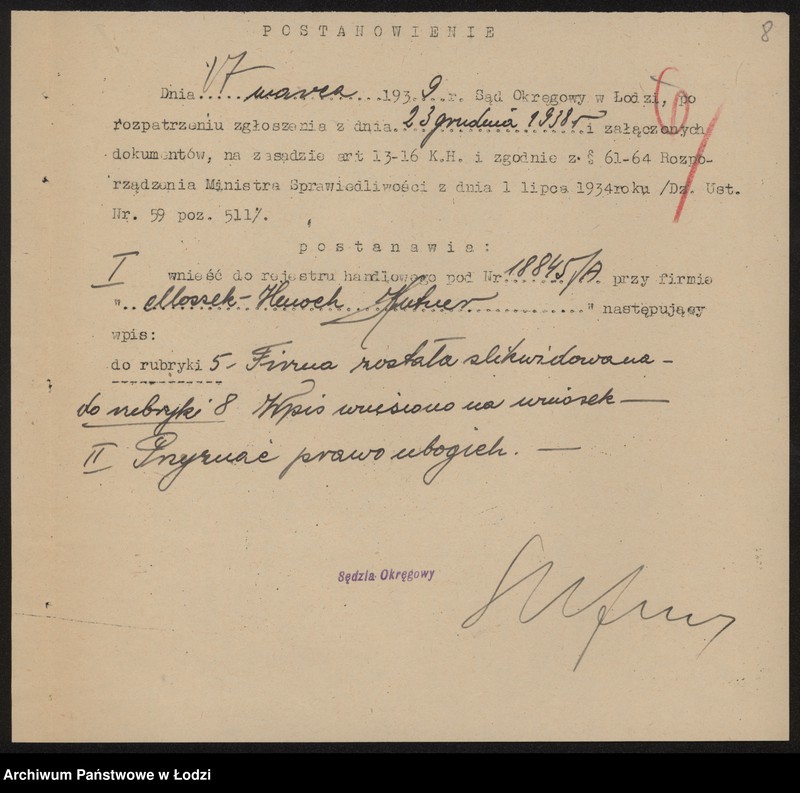 8
POSTANOWIENIE
Dnia 17 marca 1939 r. Sąd Okręgowy w Łodzi, po
rozpatrzeniu zgłoszenia z dnia 23 grudnia 1938 r i załączonych
dokumentów, na zasadzie art 13-16 K.H. i zgodnie z § 61-64 Rozpo-
rządzenia Ministra Sprawiedliwości z dnia 1 lipca 1934 roku /Dz. Ust.
Nr. 59 poz. 511/.
postanawia:
I wnieść do rejestru handlowego pod Nr 18845/A przy firmie
"Mossek-Henoch Kutner" następujący
wpis:
do rubryki 5 - Firma została zlikwidowana -
do rubryki 8 Wpis wniesiono na wniosek —
II Przyznać prawo ubogich. —
Sędzia Okręgowy
Archiwum Państwowe w Łodzi